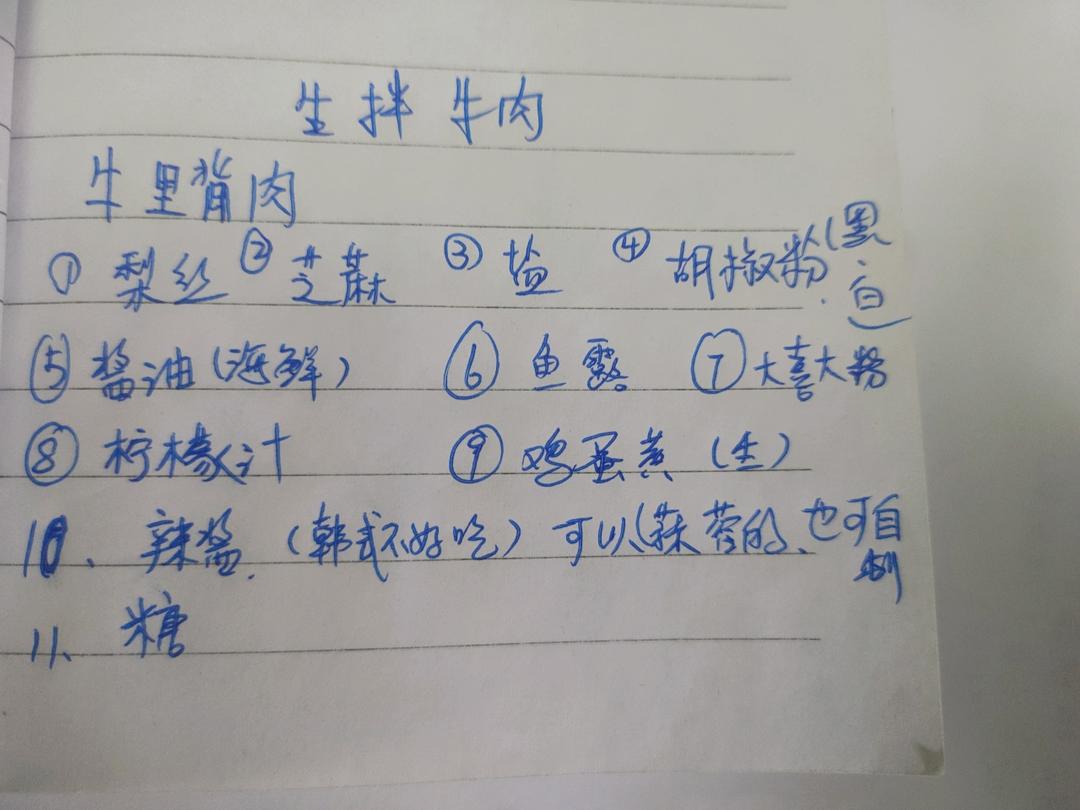 生拌牛肉
牛里背肉
① 梨丝 ② 芝麻 ③ 盐 ④ 胡椒粉(黑、白)
⑤ 酱油(海鲜) ⑥ 鱼露 ⑦ 大喜大粉
⑧ 柠檬汁 ⑨ 鸡蛋黄(生)
10、辣酱(韩式不好吃)可以蒜蓉的、也可自制
11、糖